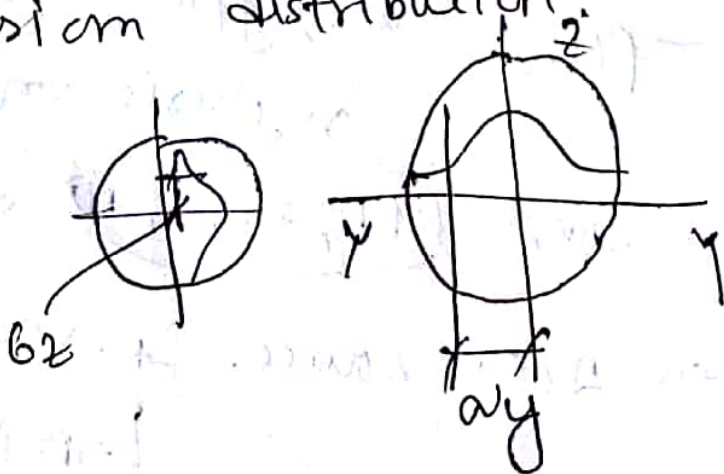 sian distribution.
Z
Y Y
σz
σy